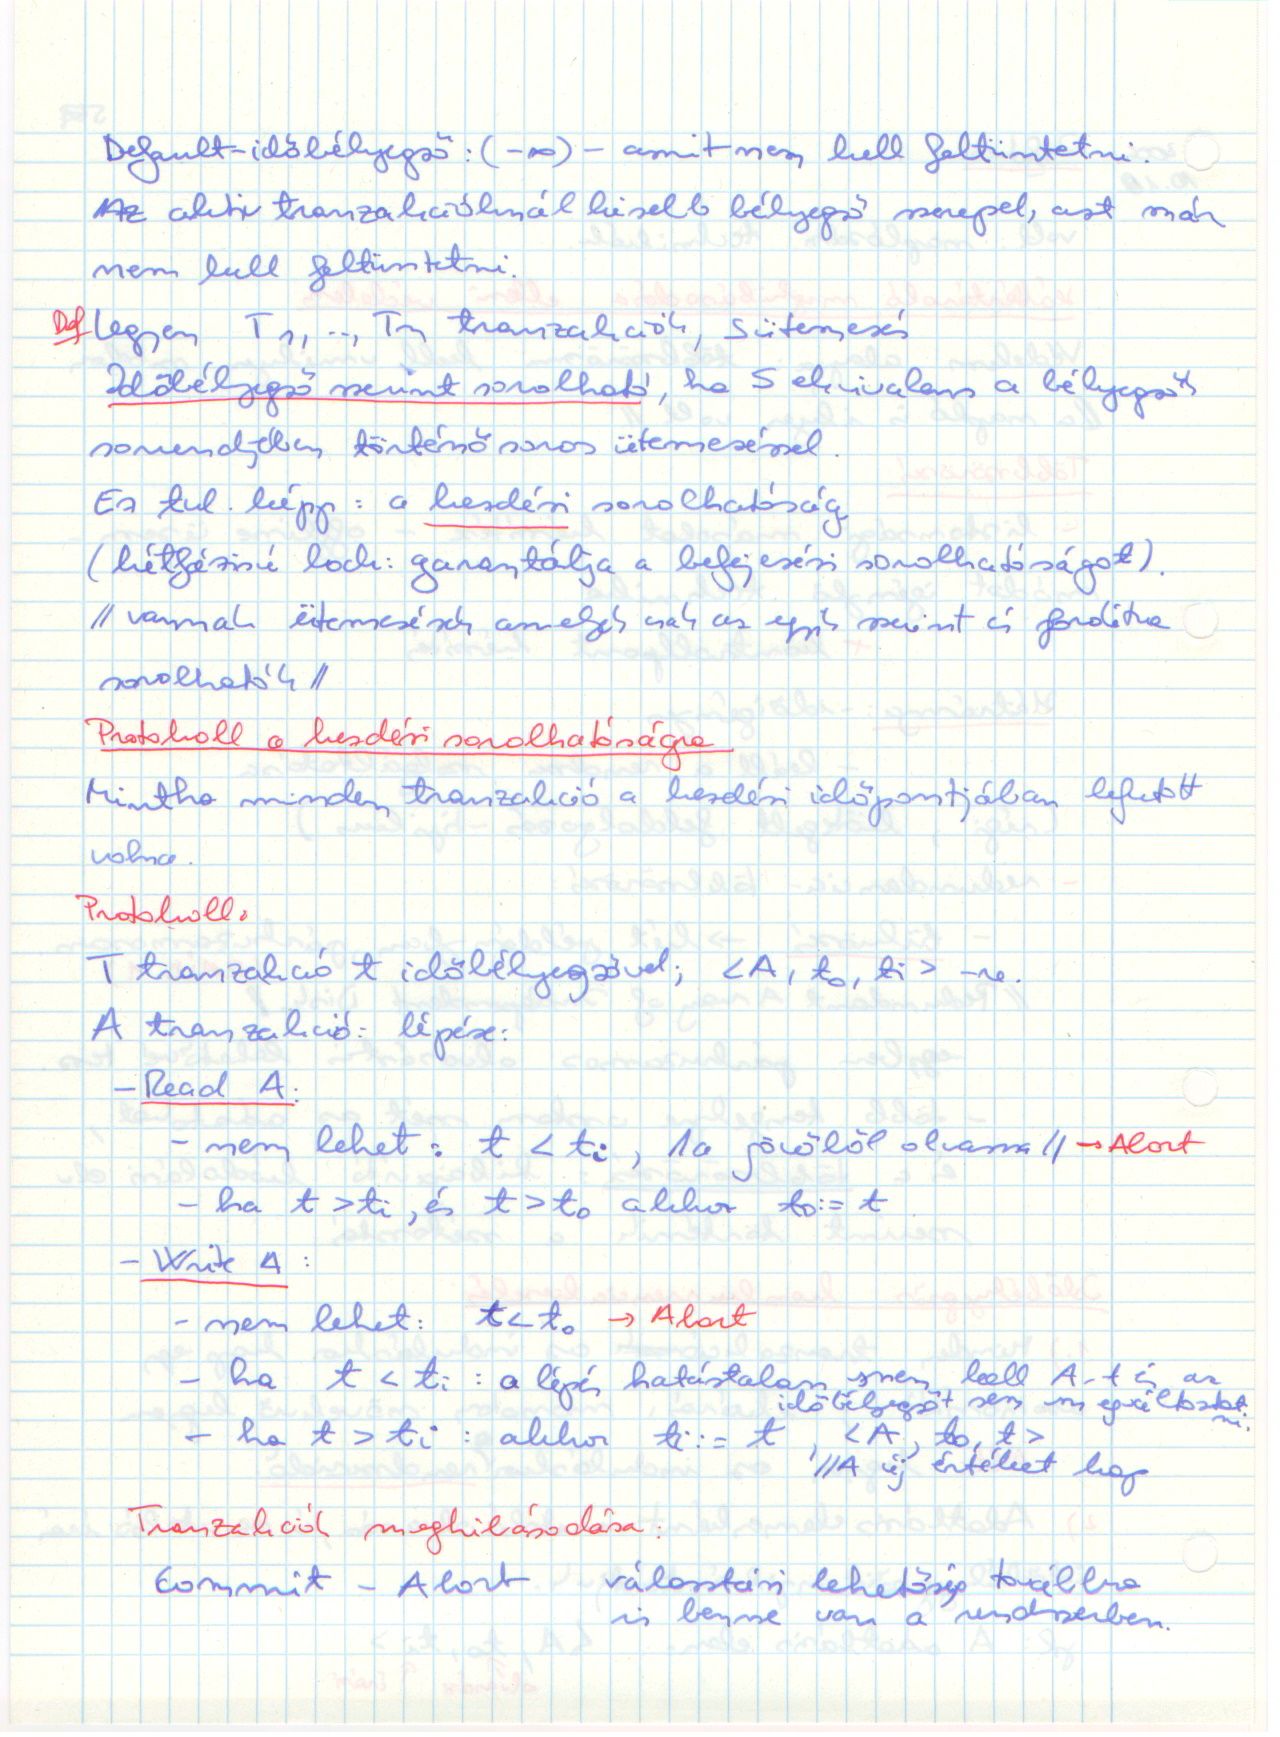 Default-időbélyegző: (-∞) - amit nem kell feltüntetni.
Az aktív tranzakcióknál kisebb bélyegző szerepel, azt már
nem kell feltüntetni.
Def Legyen T1, .., Tn tranzakciók, S ütemezés
Időbélyegző szerint sorolható, ha S ekvivalens a bélyegzők
sorrendjében történő soros ütemezéssel.
Ez tul. képp: a kezdési sorolhatóság
(kétfázisú lock: garantálja a befejezési sorolhatóságot).
// vannak ütemezések amelyek csak az egyik szerint és fordítva
sorolhatók //
Protokoll a kezdési sorolhatóságra
Mintha minden tranzakció a kezdési időpontjában lefutott
volna.
Protokoll:
T tranzakció t időbélyegzővel; <A, to, ti> -re.
A tranzakció: lépése:
- Read A:
- nem lehet: t < ti, //a jövőből olvassa// → Abort
- ha t > ti, és t > to akkor to:= t
- Write A:
- nem lehet: t < to → Abort
- ha t < ti : a lépés hatástalan nem kell A-t és az
időbélyegzőt sem megváltoztatni.
- ha t > ti : akkor ti:= t, <A, to, t>
//A új értéket kap
Tranzakciók meghibásodása:
Commit - Abort választási lehetőség továbbra
is benne van a rendszerben.